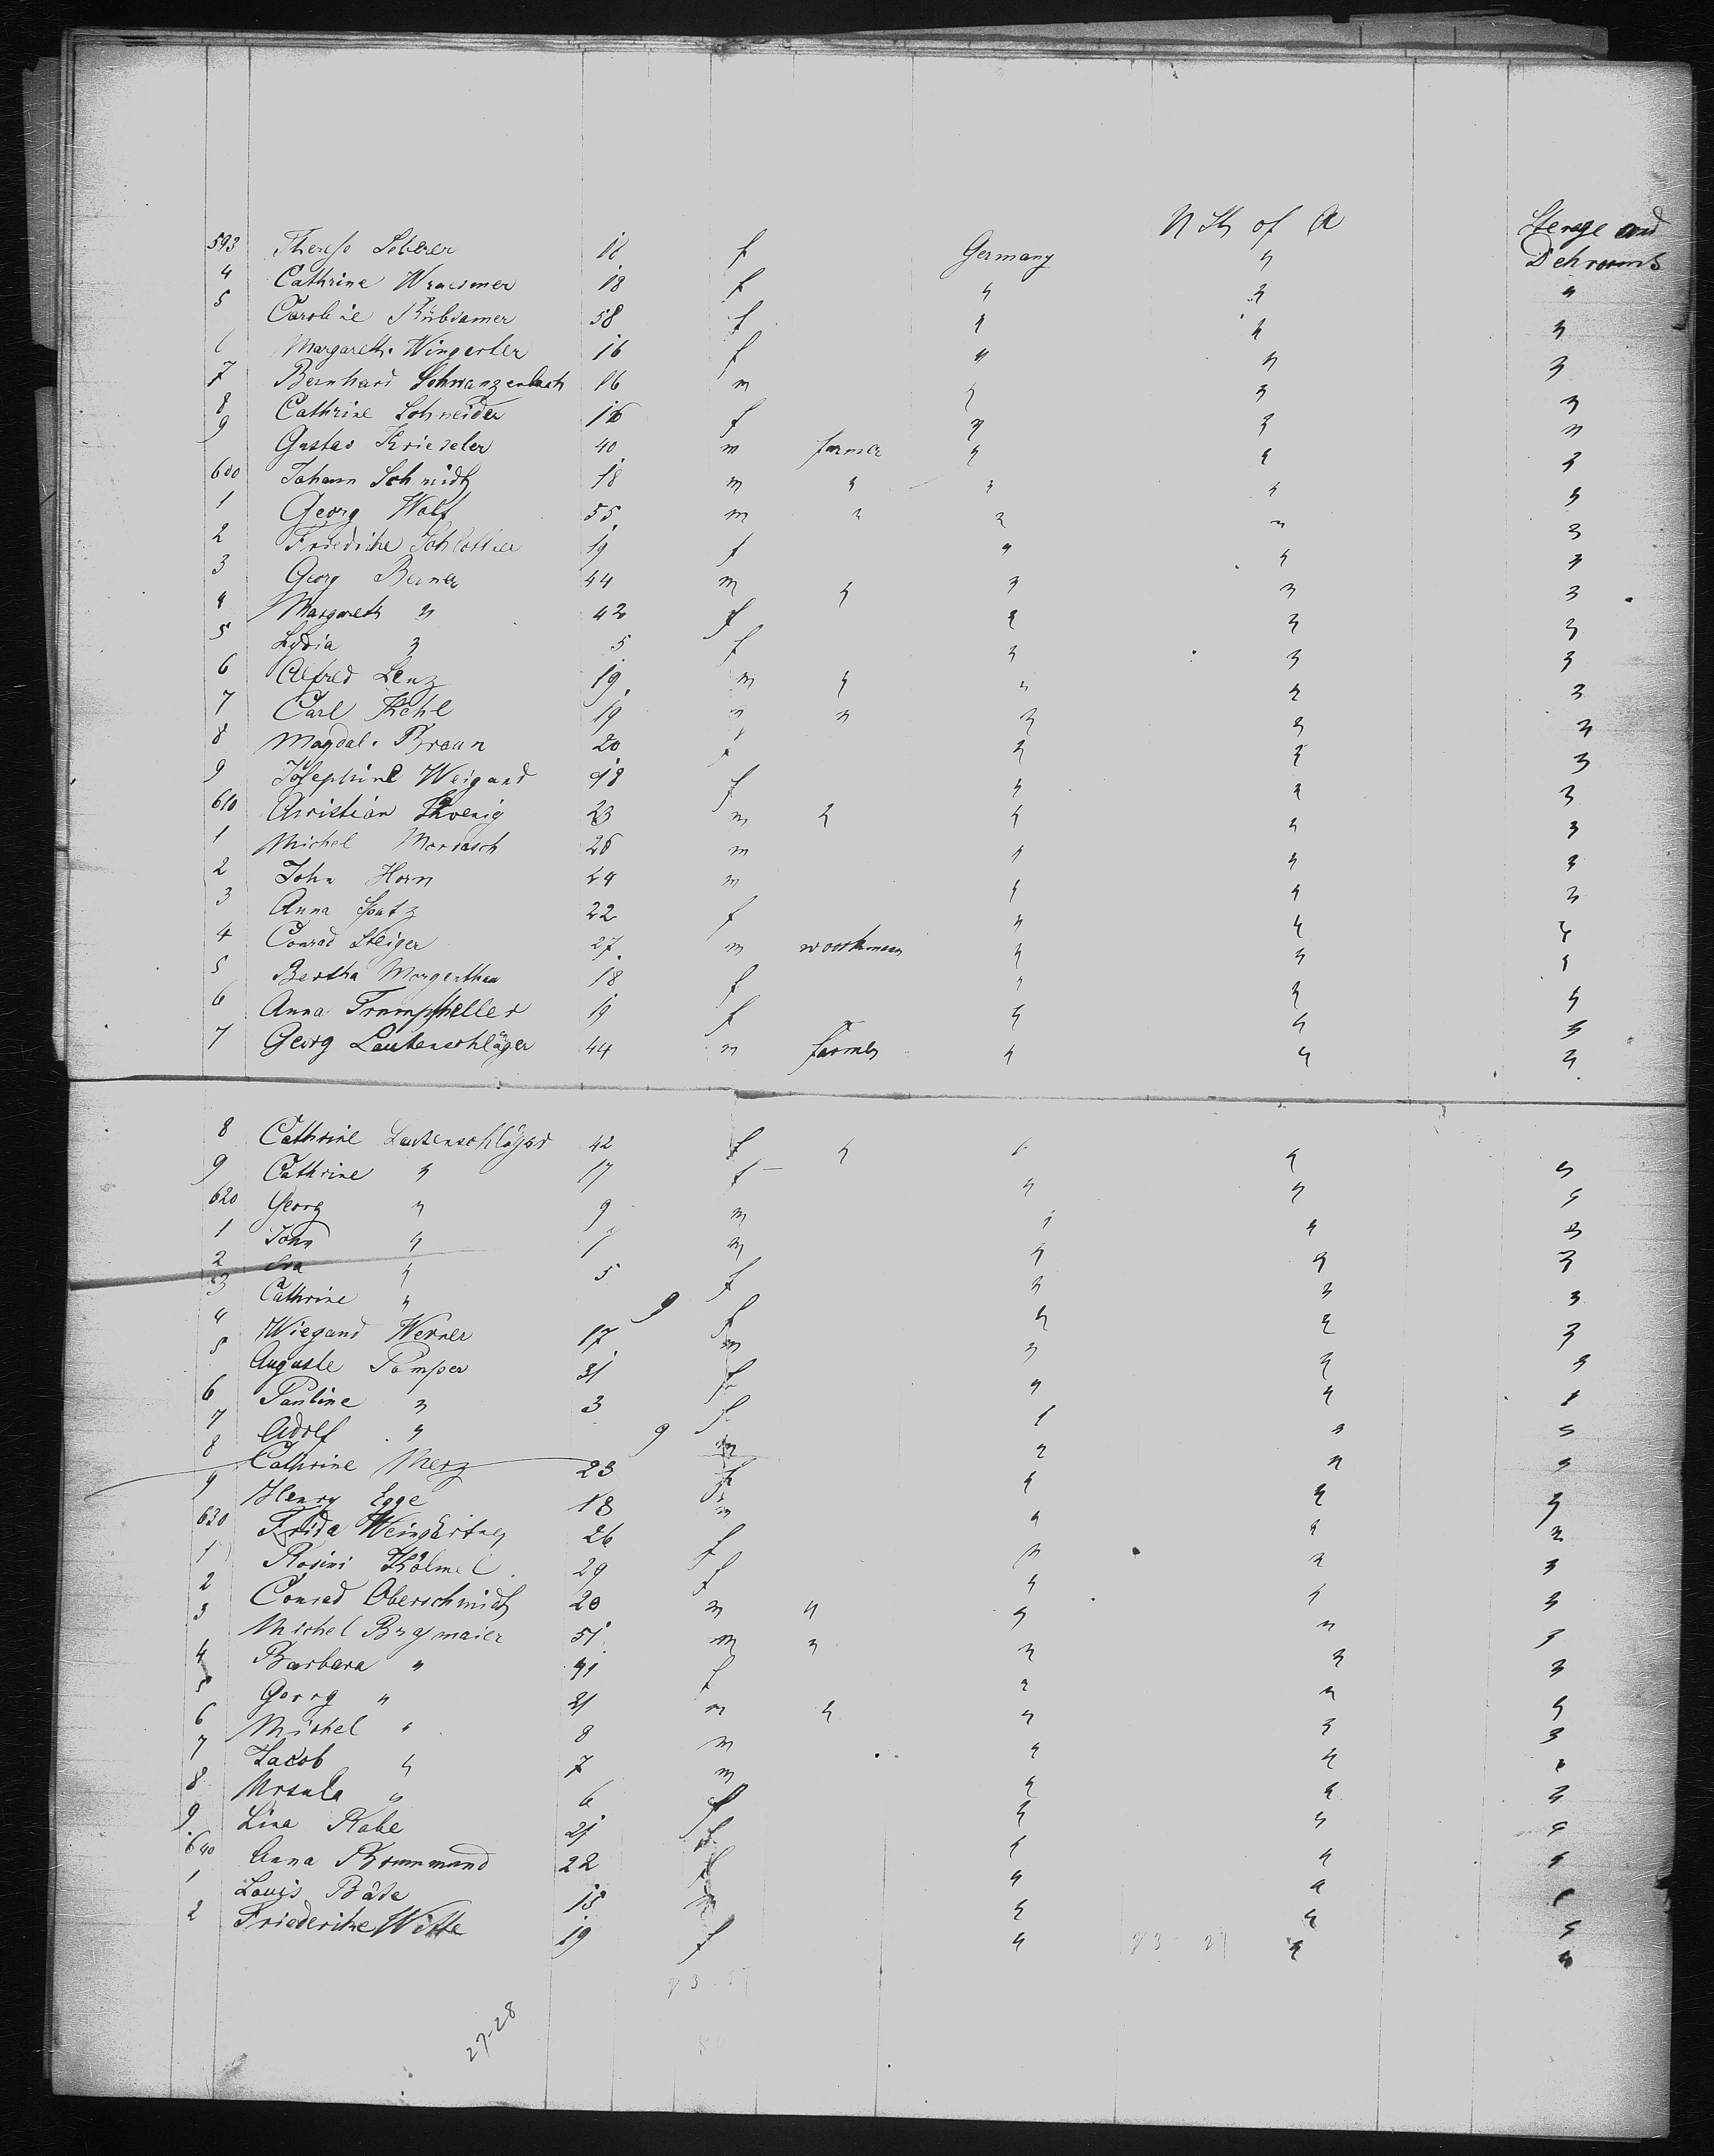 U St of A Sterage and
593 Therese 18 f Germany " Dehrooms
4 Cathrine 18 f " " "
5 Caroline Rübsamer 58 f " " "
6 Margareth. Wingerter 16 f " " "
7 Bernhard Schwanzenbach 16 m " " "
8 Cathrine Schneider 16 f " " "
9 Gustav Krieseler 40 m farmer " " "
600 Johann Schmidt 18 m " " " "
1 Georg Wolf 55 m " " " "
2 Friedrike Schlotter 19 f " " "
3 Georg Berner 44 m " " " "
4 Margareth " 42 f " " "
5 Lydia " 5 f " " "
6 Alfred Lenz 19 m " " " "
7 Carl Kehl 19 m " " " "
8 Magdal. Braun 20 f " " "
9 Josephine Weigand 18 f " " "
610 Christian Koenig 23 m " " " "
1 Michel 25 m " " "
2 John Horn 24 m " " "
3 Anna Spatz 22 f " " "
4 Conrad Steiger 27 m workman " " "
5 Bertha Morgenthau 18 f " " "
6 Anna Trumpfheller 19 f " " "
7 Georg Lautenschläger 44 m farmer " " "
8 Cathrine Lautenschläger 42 f " " " "
9 Cathrine " 17 f " " "
620 Georg " 9 m " " "
1 John " 7 m " " "
2 Eva " 5 f " " "
3 Cathrine " 9 f " " "
4 Wiegand Werner 17 m " " "
5 Auguste Pamper 31 f " " "
6 Pauline " 3 f " " "
7 Adolf " 9 m " " "
8 Cathrine Merz 23 f " " "
9 Henry Egge 18 m " " "
630 Frida Weingärtner 26 f " " "
1 Rosini Kölmel 29 f " " "
2 Conrad Oberschmidt 20 m " " " "
3 Michel Braymaier 51 m " " " "
4 Barbara " 41 f " " "
5 Georg " 21 m " " " "
6 Michel " 8 m " " "
7 Jakob " 7 m " " "
8 Ursula " 6 f " " "
9 Line Rabe 21 f " " "
640 Anna Brummund 22 f " " "
1 Louis Bäde 15 m " " "
2 Friederike Witte 19 f " " "
27-28